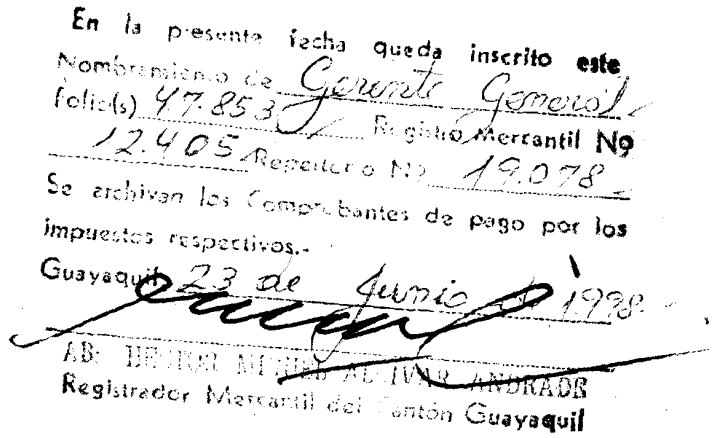 En la presente fecha queda inscrito este
Nombramiento de Gerente General
Folio(s) 47.853 Registro Mercantil Nº
12.405 Repertorio Nº 19.078
Se archivan los Comprobantes de pago por los
impuestos respectivos.-
Guayaquil 23 de Junio de 1998
AB: HECTOR MIGUEL ALCIVAR ANDRADE
Registrador Mercantil del Cantón Guayaquil